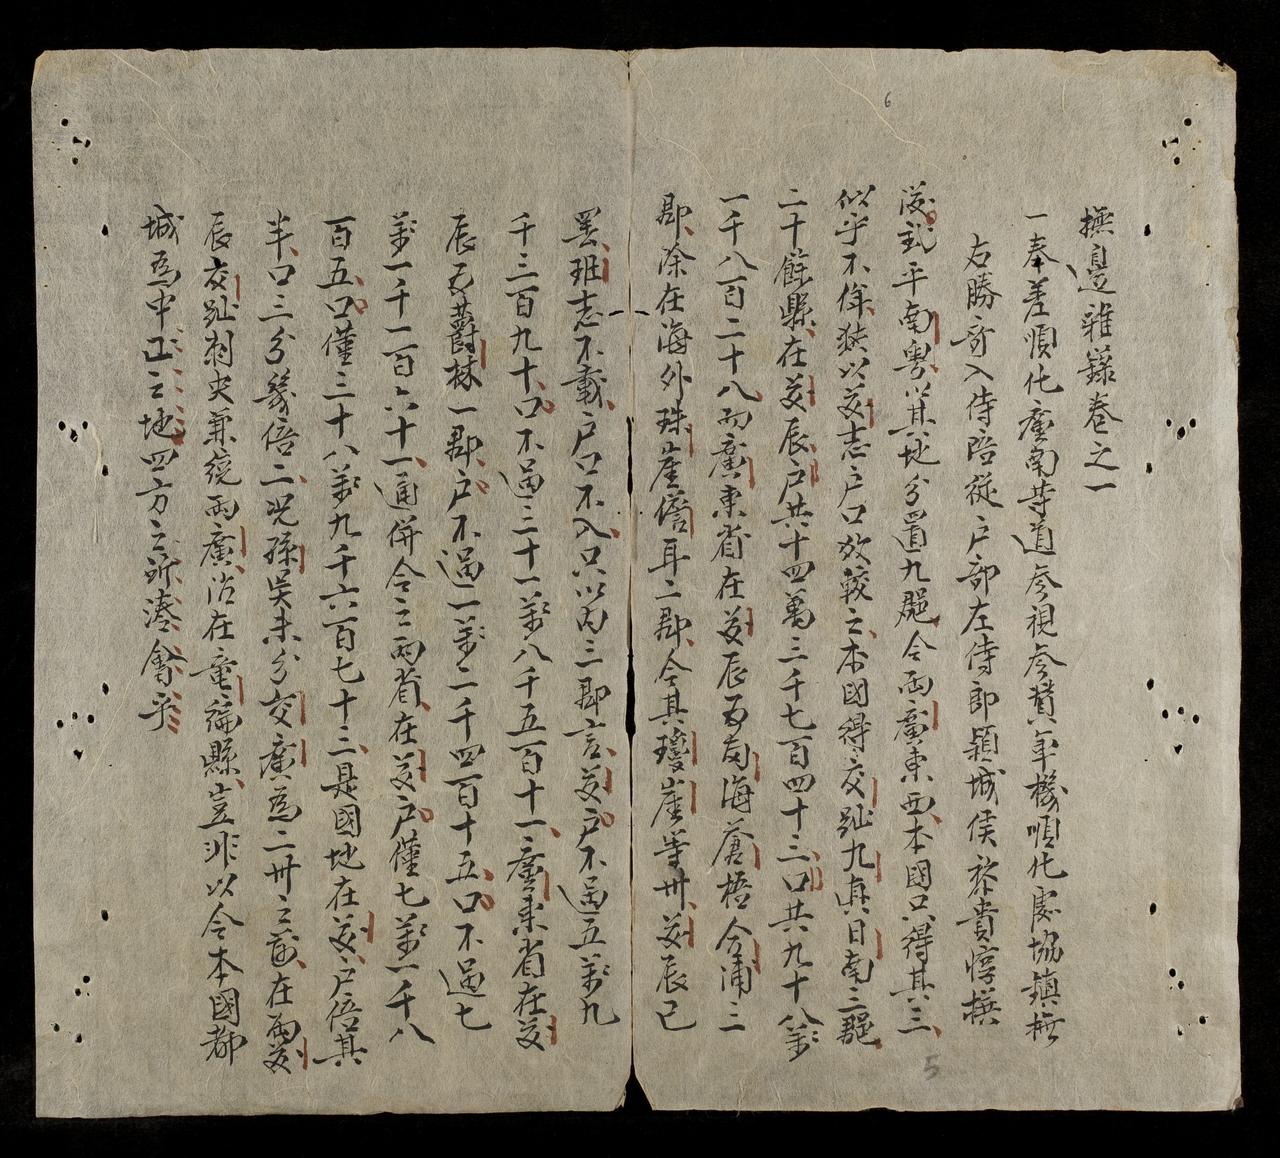 撫邊雜錄卷之一
一奉差順化廣南等道参視参贊軍機順化處協鎮撫
右勝奇入侍陪從户部左侍郎穎城侯黎貴惇撰
漢武平南粤以其地分置九郡今两廣東西本國只得其三
似乎不侔狹以志户口攷較之本國得交趾九真日南三郡
二十餘縣在辰户共十四萬三千七百四十三口共九十八萬
一千八百二十八而廣東省在辰為南海蒼梧合浦三
郡除在海外珠崖儋耳二郡今其瓊崖等州辰已
罢班志不載户口不入只以内三郡言户不過五萬九
千三百九十口不過三十一萬八千五百十一廣東省在
辰為欝林一郡户不過一萬二千四百十五口不過七
萬一千一百六十一通併今之两省在户僅七萬一千八
百五口僅三十八萬九千六百七十二是國地在户倍其
半口三分幾倍二况孫吴未分交廣為二州之前在两
辰交趾刺史兼統两廣治在竜編縣豈非以今本國都
城為中正之地四方之所湊會乎
6
5